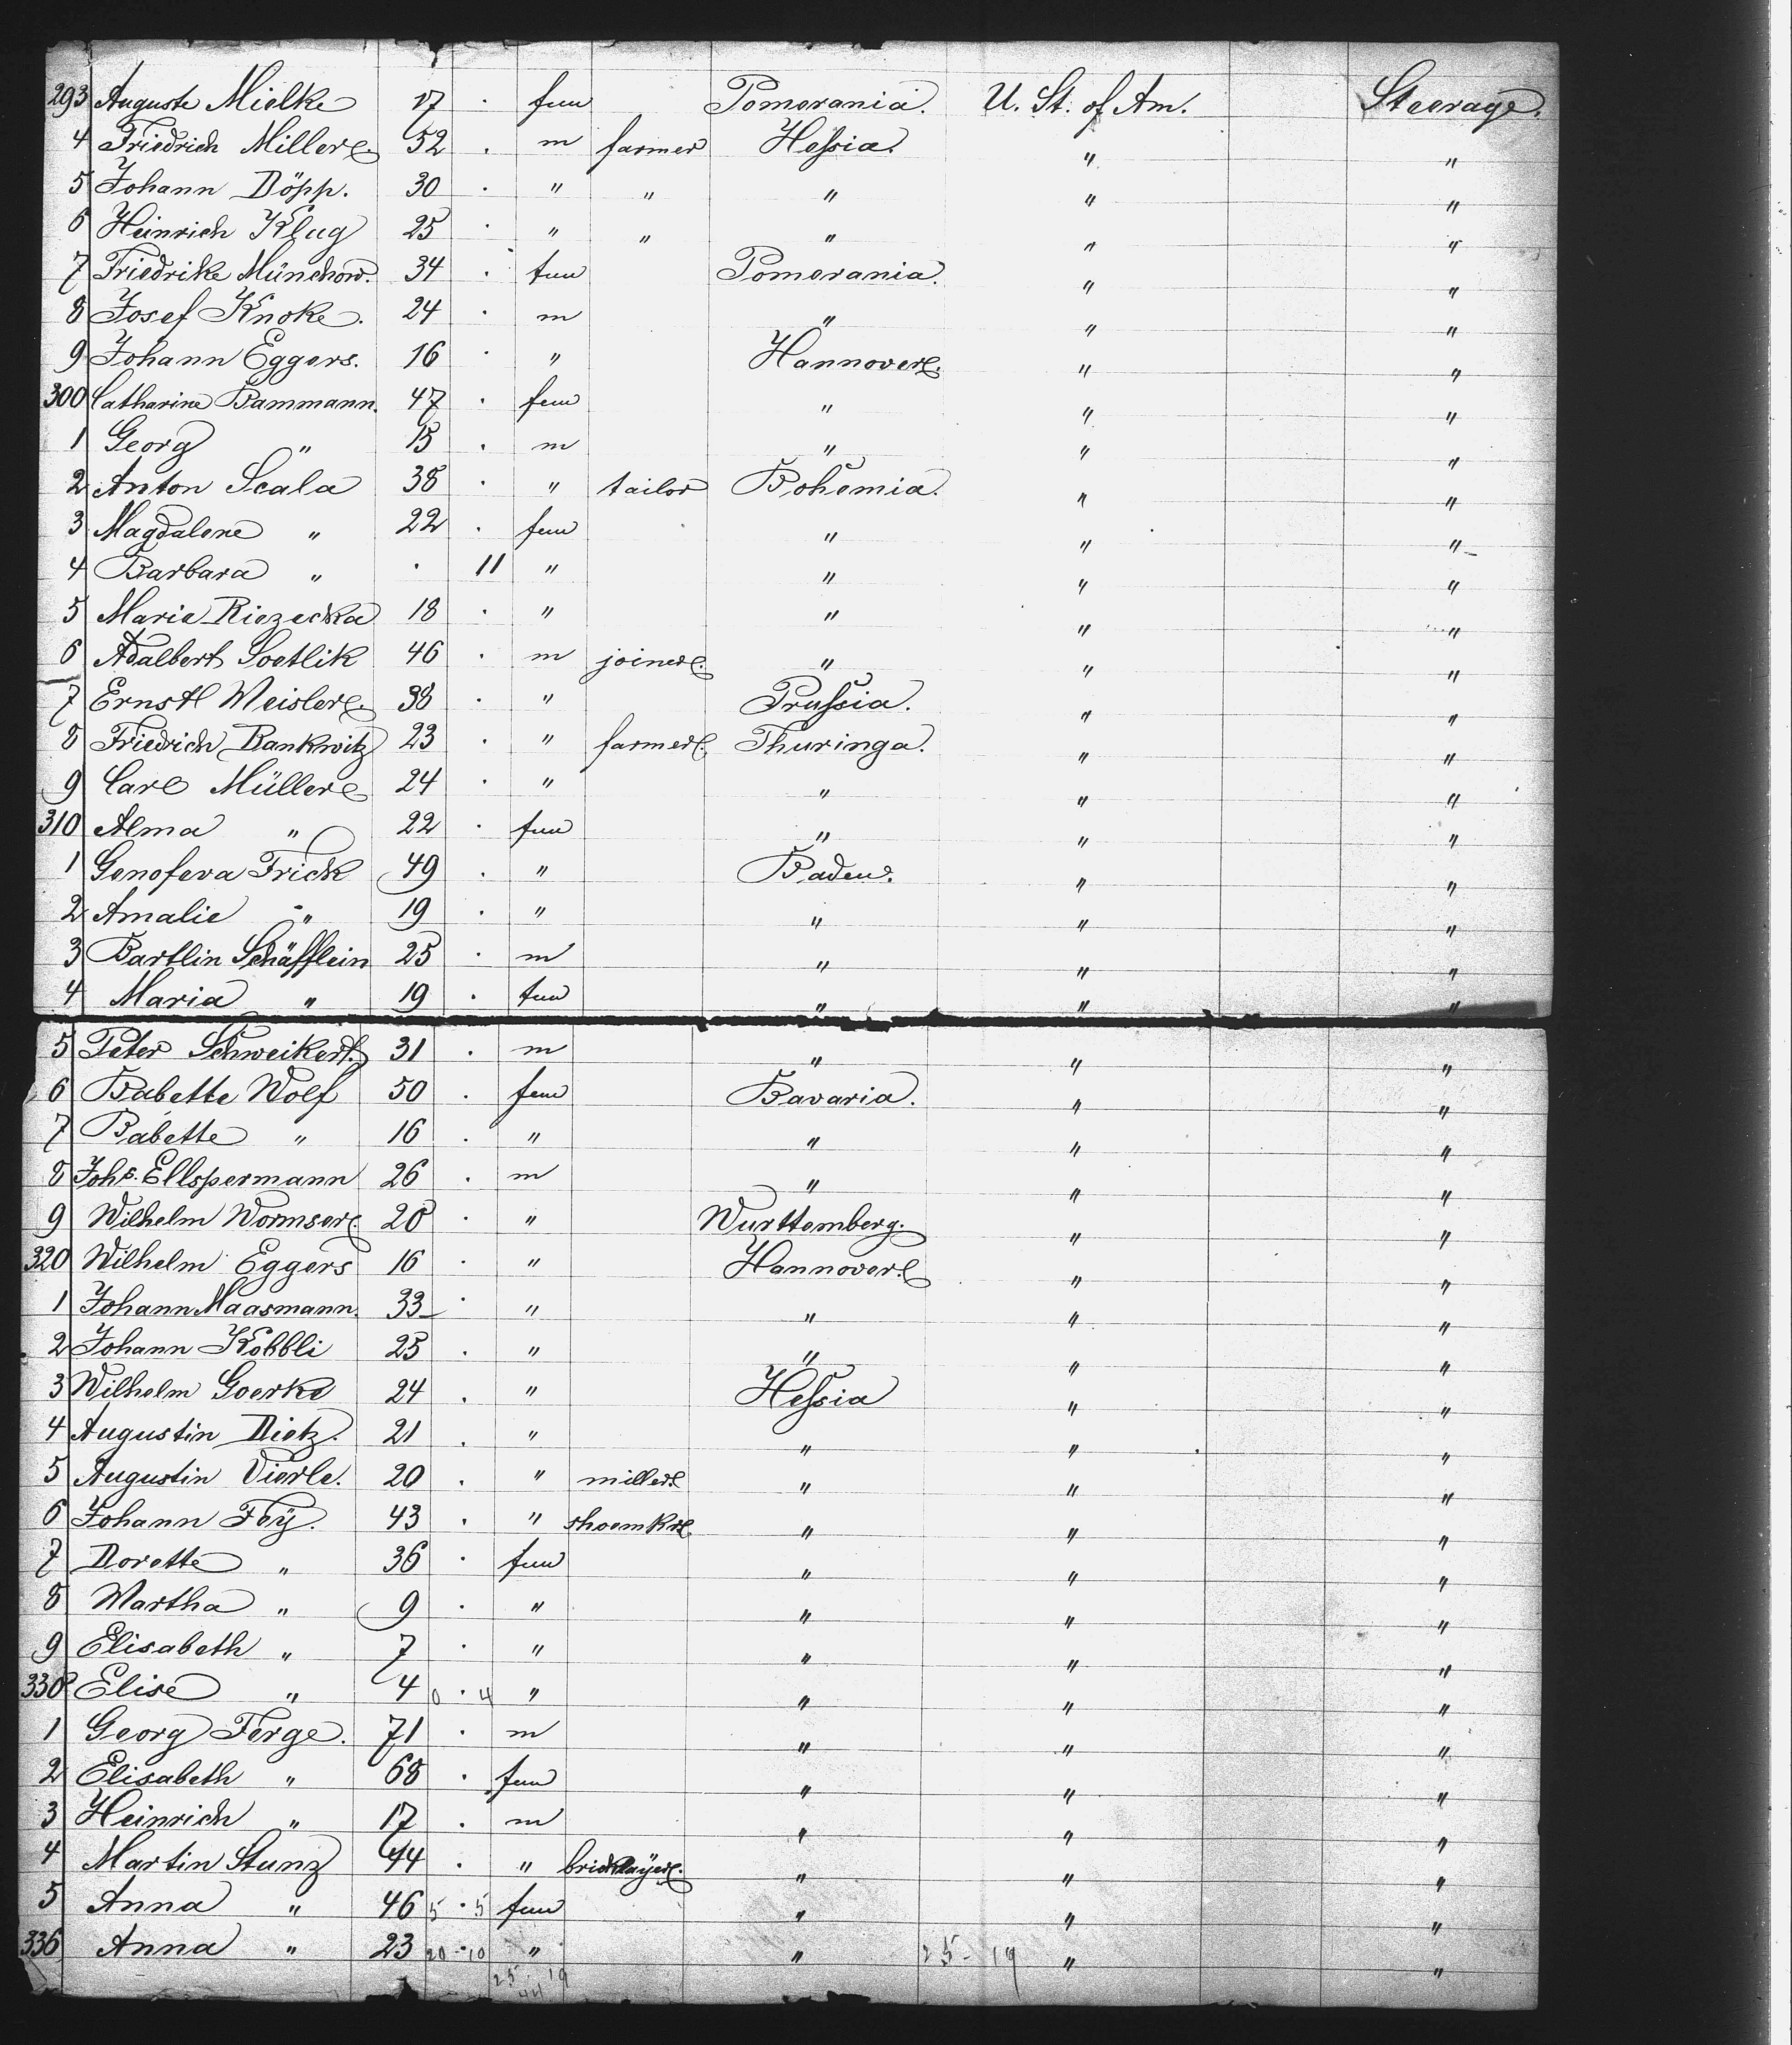 293 Auguste Mielke 17 · fem Pomerania. U. St. of Am. Steerage.
4 Friedrich Miller. 52 · m farmer Hessia. " "
5 Johann Döpp. 30 · " " " " "
6 Heinrich Klug 25 · " " " " "
7 Friedrike Münchow. 34 · fem Pomerania. " "
8 Josef Knoke. 24 · m " " "
9 Johann Eggers. 16 · " Hannover. " "
300 Catharine Bammann. 47 · fem " " "
1 Georg " 15 · m " " "
2 Anton Scala 38 · " tailor Bohemia. " "
3 Magdalene " 22 · fem " " "
4 Barbara " · 11 " " " "
5 Marie Riezecka 18 · " " " "
6 Adalbert Soetlik 46 · m joiner. " " "
7 Ernst Meisler. 38 · " Prussia. " "
8 Friedrich Rankwitz 23 · " farmer. Thuringa. " "
9 Carl Müller 24 · " " " "
310 Alma " 22 · fem " " "
1 Genofeva Frick 49 · " Baden. " "
2 Amalie " 19 · " " " "
3 Bartlin Schäfflein 25 · m " " "
4 Maria " 19 · fem " " "
5 Peter Schweikert. 31 · m " " "
6 Babette Wolf 50 · fem Bavaria. " "
7 Babette " 16 · " " " "
8 Johs. Ellspermann 26 · m " " "
9 Wilhelm Wormser. 28 · " Wurttemberg. " "
320 Wilhelm Eggers 16 · " Hannover. " "
1 Johann Maasmann. 33 · " " " "
2 Johann Köbbli 25 · " " " "
3 Wilhelm Goerke 24 · " Hessia " "
4 Augustin Dietz. 21 · " " " "
5 Augustin Vierle. 20 · " miller " " "
6 Johann Fey. 43 · " shoemkr. " " "
7 Dorette " 36 · fem " " "
8 Martha " 9 · " " " "
9 Elisabeth " 7 · " " " "
330 Elise " 4 0 · 4 " " " "
1 Georg Ferge. 71 · m " " "
2 Elisabeth " 68 · fem " " "
3 Heinrich " 17 · m " " "
4 Martin Stunz 44 · " bricklayer. " " "
5 Anna " 46 5 · 5 fem " " "
336 Anna " 23 20 · 10 " " 25 - 19 " "
25 19
44